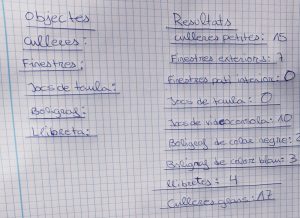 Objectes
Culleres:
Finestres:
Jocs de taula:
Bolígraf:
Llibreta:
Resultats
Culleres petites: 15
Finestres exteriors: 7
Finestres pati interior: 0
Jocs de taula: 0
Jocs de videoconsola: 10
Bolígraf de color negre:
Bolígraf de color blau: 3
Llibretes: 4
Culleres grans: 17